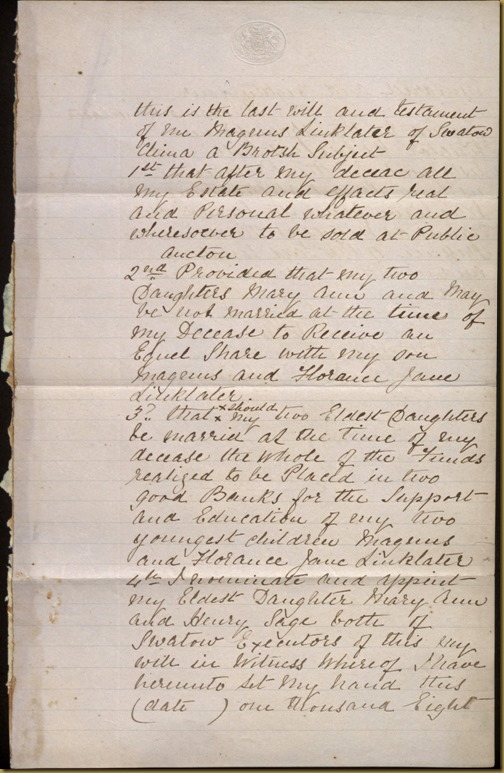 this is the last will and testament
of me Magnus Linklater of Swatow
China a Brotsh Subject
1st that after my deceac all
my Estate and effacts real
and Personal whatever and
wheresoever to be sold at Public
aucton
2nd Provided that my two
Daughters Mary Ann and May
be not married at the time of
my Decease to Receive an
Equel Share with my son
Magnus and Florance Jane
Linklater
3? that × should
× my two Eldest Daughters
be married at the time of my
decease the whole of the Funds
realized to be Placed in two
good Banks for the Support
and Education of my two
youngest children Magnus
and Florance Jane Linklater
4th I nominate and appoint
my Eldest Daughter Mary Ann
and Henry Sage both of
Swatow Executors of this my
will in Witness Whereof I have
hereunto Set My hand this
(date ) one thousand Eight